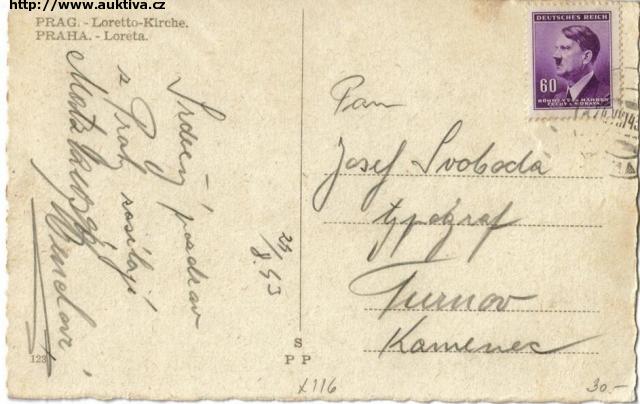 http://www.auktiva.cz
PRAG. - Loretto-Kirche.
PRAHA. - Loreta.
Srdečný pozdrav
z Prahy zasílají
Marta
DEUTSCHES REICH
60
BÖHMEN u. MÄHREN
ČECHY a MORAVA
Pan
Josef Svoboda
typograf
Turnov
Kamenec
43
S
P P
123
x116
30.-